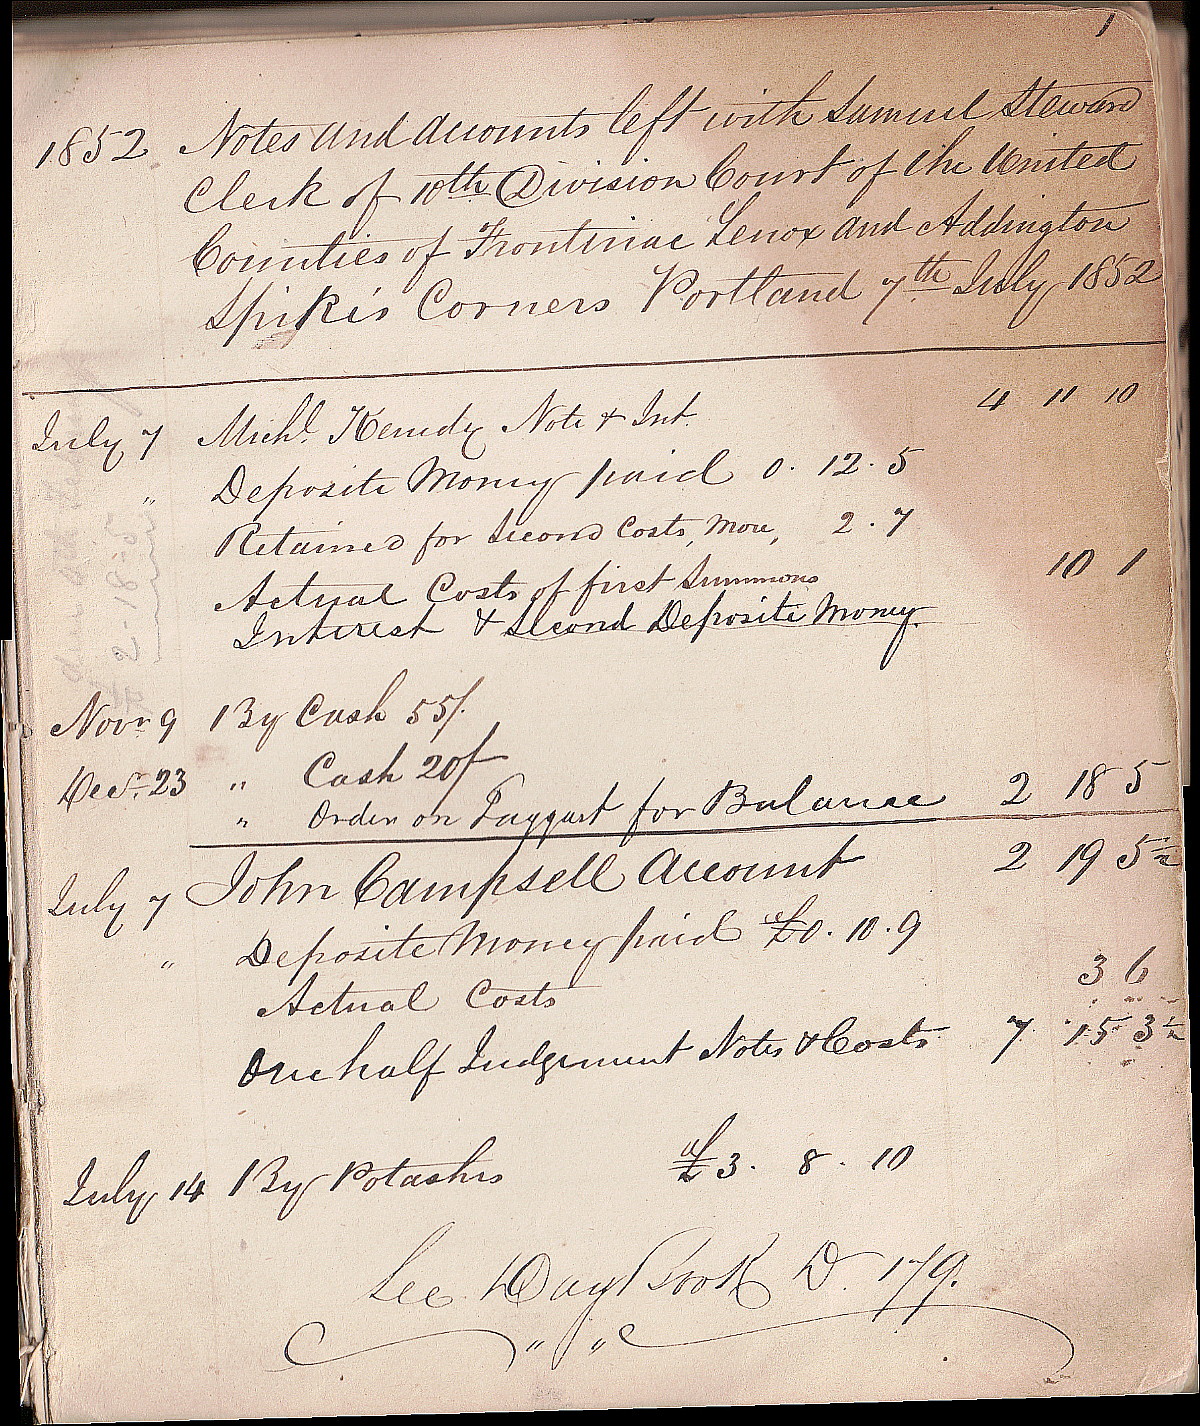 1
1852 Notes and accounts left with Samuel Steward
Clerk of 10th Division Court of the United
Counties of Frontinac Lenox and Addington
Spikes Corners Portland 7th July 1852
July 7 Michl. Kenedy Note & Int. 4 11 10
" Deposite Money paid 0. 12. 5
Retained for Second Costs, More, 2. 7
Actual Costs of first Summons 10 1
Interest & Second Deposite Money.
Novr 9 By Cash 55/.
Decr. 23 " Cash 20/
" Order on Taggart for Balance 2 18 5
July 7 John Campsell Account 2 19 5½
" Deposite Money paid £0. 10. 9
Actual Costs 3 6
One half Judgement Notes & Costs 7 15 3½
July 14 By Potashes £3. 8. 10
See Day Book D. 179.
" "